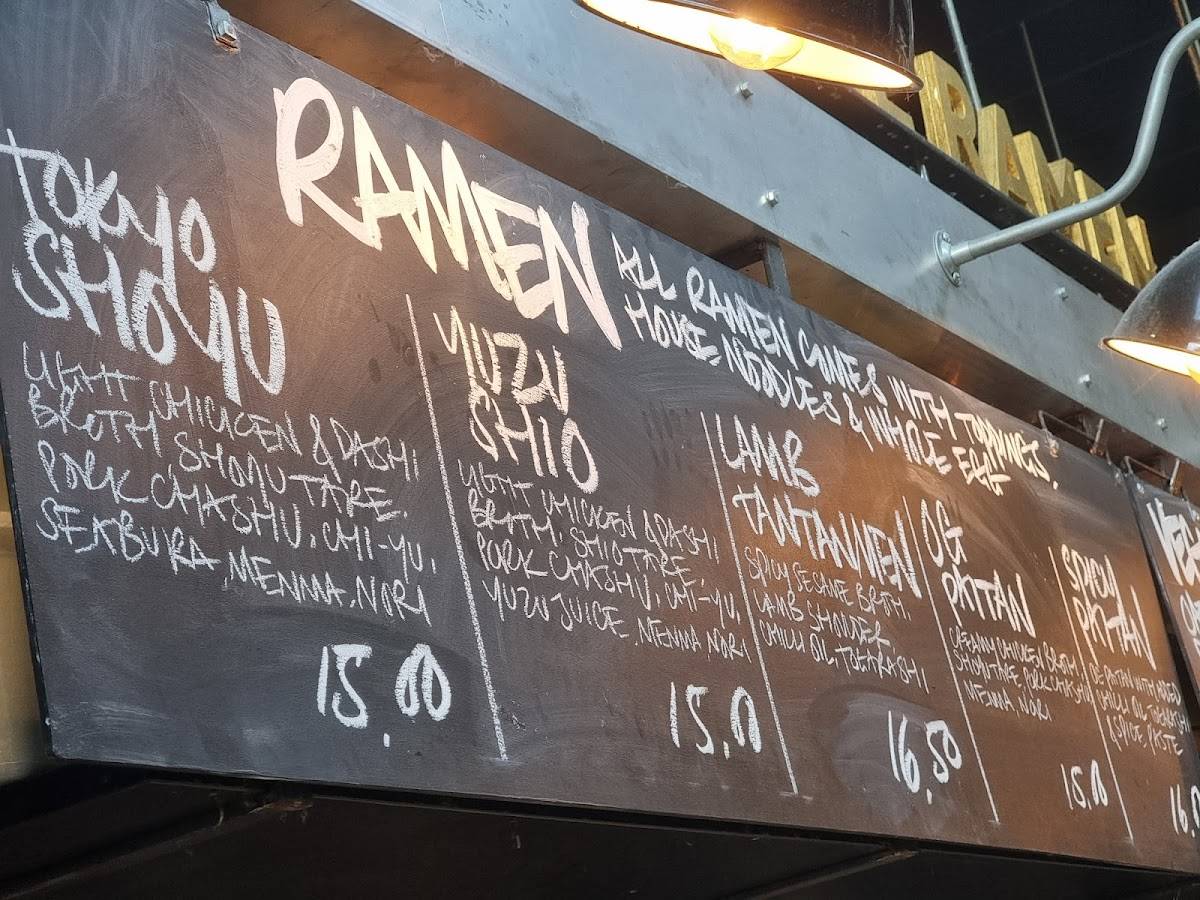 RAMEN
RAMEN
ALL RAMEN COMES WITH TOPPINGS,
HOUSE NOODLES & WHOLE EGG
TOKYO
SHOYU
LIGHT CHICKEN & DASHI
BROTH SHOYU TARE,
PORK CHASHU, CHI-YU,
SEABURA, MENMA, NORI
15.00
YUZU
SHIO
LIGHT CHICKEN & DASHI
BROTH, SHIO TARE,
PORK CHASHU, CHI-YU,
YUZU JUICE, MENMA, NORI
15.0
LAMB
TANTANMEN
SPICY SESAME BROTH,
LAMB SHOULDER,
CHILLI OIL, TOGARASHI
16.50
OG
PAITAN
CREAMY CHICKEN BROTH,
SHOYU TARE, PORK CHASHU
MENMA, NORI
15.0
SPICY
PAITAN
OG PAITAN WITH ADDED
CHILLI OIL, TOGARASHI
& SPICE PASTE
16.